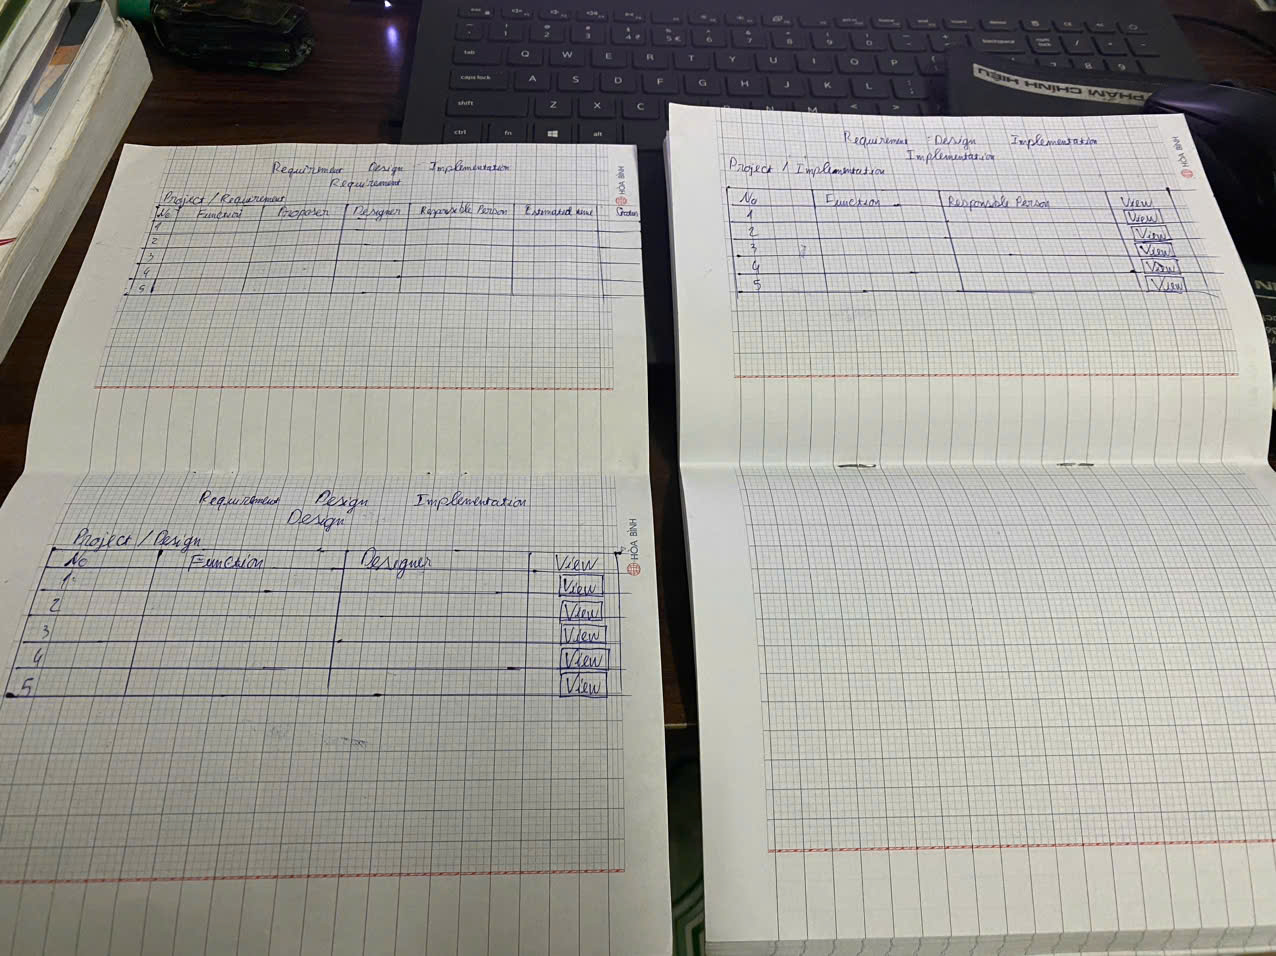 Requirement Design Implementation
Requirement
Project / Requirement
No Function Proposer Designer Responsible Person Estimated time Status
1
2
3
4
5
HÒA BÌNH
Requirement Design Implementation
Design
Project / Design
No Function Designer View
1 View
2 View
3 View
4 View
5 View
HÒA BÌNH
Requirement Design Implementation
Implementation
Project / Implementation
No Function Responsible Person View
1 View
2 View
3 View
4 View
5 View
HÒA BÌNH
PHẠM CHÍNH HIỆU
Q W E R T Y U I O P
caps lock A S D F G H J K L
shift Z X C N M < >
ctrl fn alt
tab
backspace